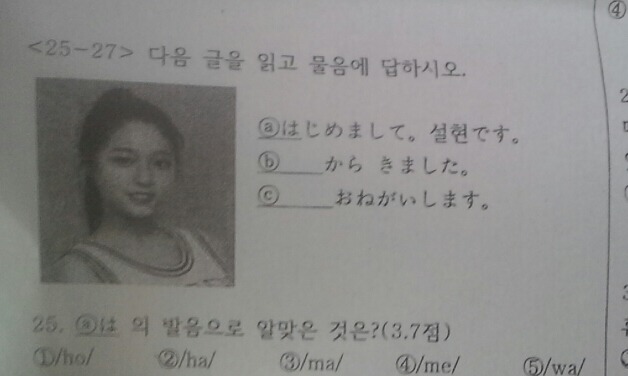 <25-27> 다음 글을 읽고 물음에 답하시오.
ⓐはじめまして。설현です。
ⓑ_____から きました。
ⓒ_____おねがいします。
25. ⓐは 의 발음으로 알맞은 것은?(3.7점)
①/ho/ ②/ha/ ③/ma/ ④/me/ ⑤/wa/
④